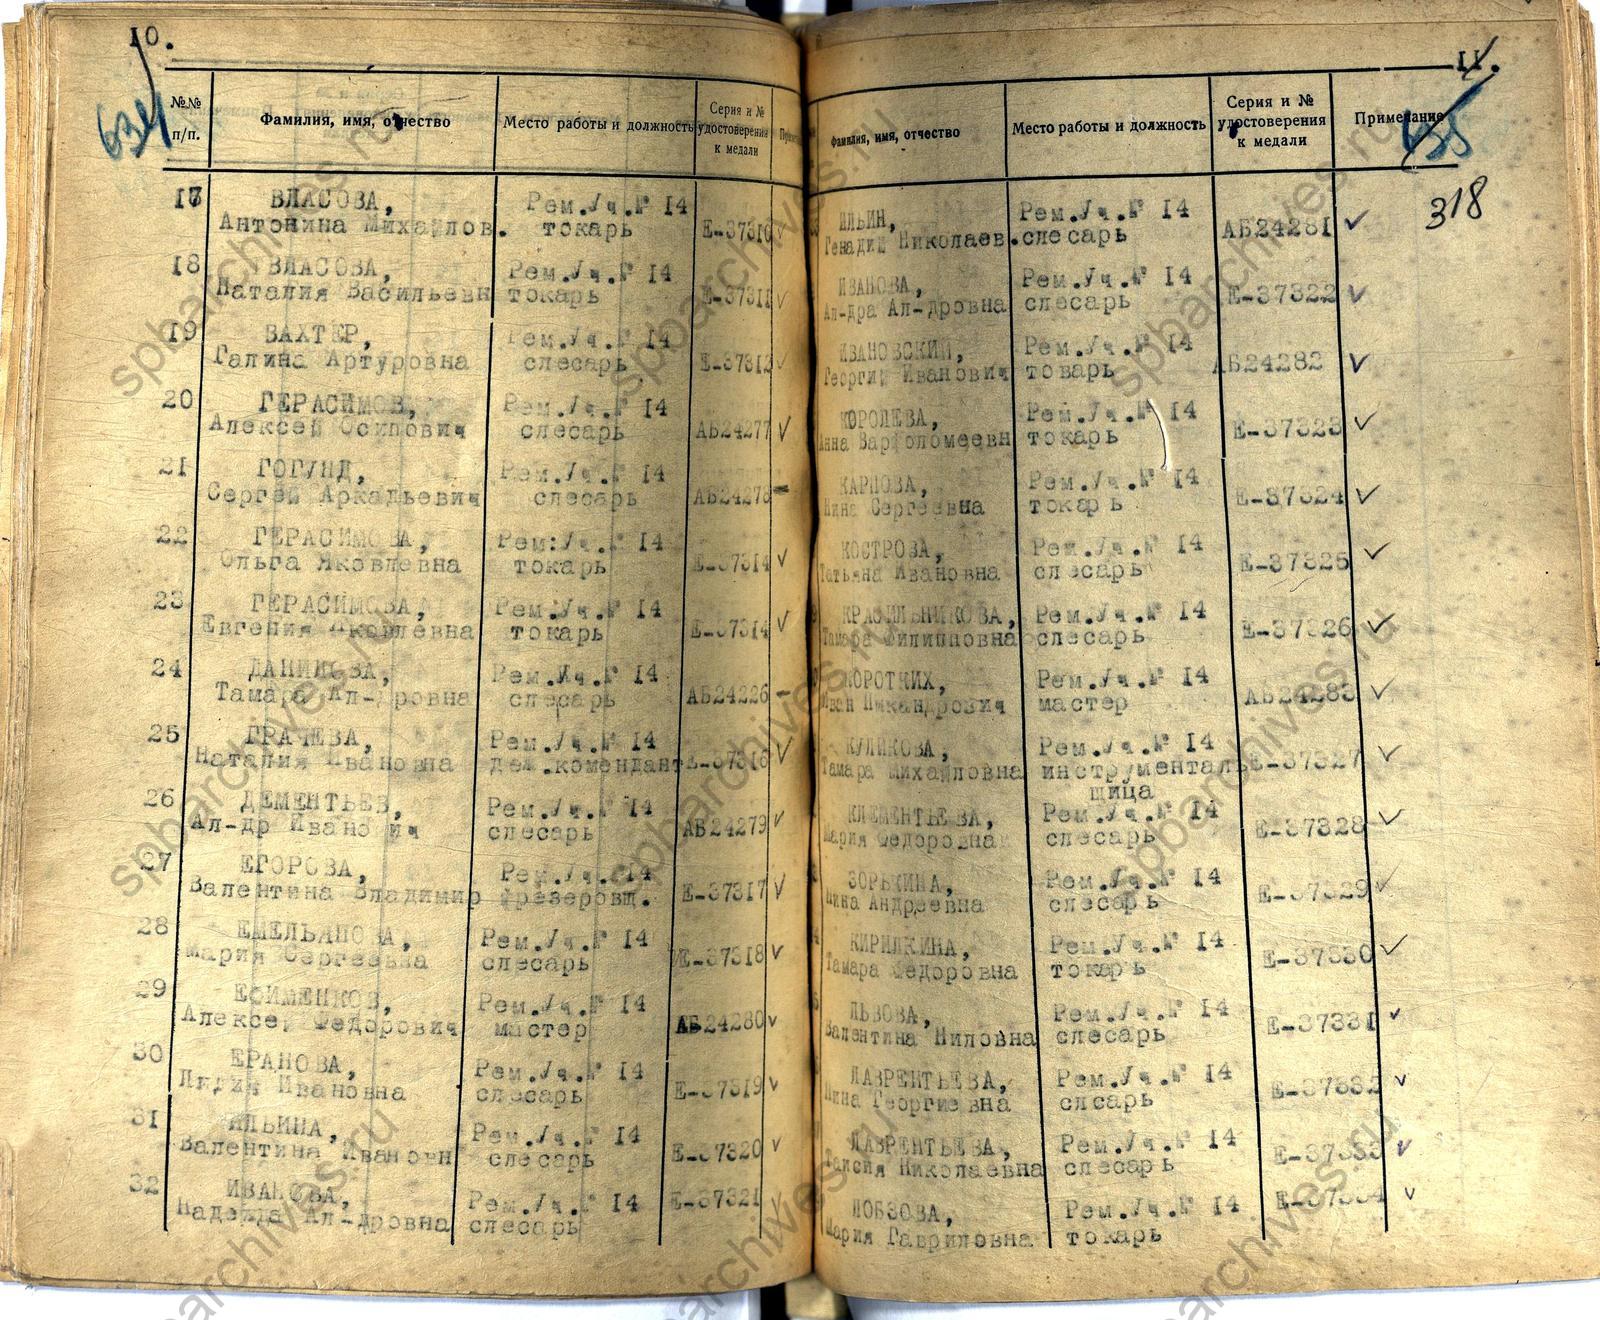 10.
634
№№ п/п.
Фамилия, имя, отчество
Место работы и должность
Серия и № удостоверения к медали
17 ВЛАСОВА, Рем.Уч.№ 14
Антонина Михайлов. токарь Е-37310 ✓
18 ВЛАСОВА, Рем.Уч.№ 14
Наталия Васильевн токарь Е-37311 ✓
19 ВАХТЕР, Рем.Уч.№ 14
Галина Артуровна слесарь Е-37312 ✓
20 ГЕРАСИМОВ, Рем.Уч.№ 14
Алексей Осипович слесарь АБ24277 ✓
21 ГОГУНД, Рем.Уч.№ 14
Сергей Аркадьевич слесарь АБ24278 -
22 ГЕРАСИМОВА, Рем:Уч.№ 14
Ольга Яковлевна токарь Е-37314 ✓
23 ГЕРАСИМОВА, Рем.Уч.№ 14
Евгения Яковлевна токарь Е-37314 ✓
24 ДАНИЛОВА, Рем.Уч.№ 14
Тамара Ал-дровна слесарь АБ24226 -
25 ГРАЧЕВА, Рем.Уч.№ 14
Наталия Ивановна деж.комендант Е-37316 ✓
26 ДЕМЕНТЬЕВ, Рем.Уч.№ 14
Ал-др Иванович слесарь АБ24279 ✓
27 ЕГОРОВА, Рем.Уч.№ 14
Валентина Владимир фрезеровщ. Е-37317 ✓
28 ЕМЕЛЬЯНОВА, Рем.Уч.№ 14
Мария Сергеевна слесарь Е-37318 ✓
29 ЕФИМЕНКОВ, Рем.Уч.№ 14
Алексей Федорович мастер АБ24280 ✓
30 ЕРАНОВА, Рем.Уч.№ 14
Лидия Ивановна слесарь Е-37319 ✓
31 ИЛЬИНА, Рем.Уч.№ 14
Валентина Ивановн слесарь Е-37320 ✓
32 ИВАНОВА, Рем.Уч.№ 14
Надежда Ал-дровна слесарь Е-37321 ✓
11.
635
318
Фамилия, имя, отчество
Место работы и должность
Серия и № удостоверения к медали
Примечание
ИЛЬИН, Рем.Уч.№ 14
Генадий Николаев. слесарь АБ24281 ✓
ИВАНОВА, Рем.Уч.№ 14
Ал-дра Ал-дровна слесарь Е-37322 ✓
ИВАНОВСКИЙ, Рем.Уч.№ 14
Георгий Иванович товарь АБ24282 ✓
КОРОЛЕВА, Рем.Уч.№ 14
Анна Варфоломеевн токарь Е-37323 ✓
КАРПОВА, Рем.Уч.№ 14
Нина Сергеевна токарь Е-37324 ✓
КОСТРОВА, Рем.Уч.№ 14
Татьяна Ивановна слесарь Е-37325 ✓
КРАСИЛЬНИКОВА, Рем.Уч.№ 14
Тамара Филипповна слесарь Е-37326 ✓
КОРОТКИХ, Рем.Уч.№ 14
Иван Никандрович мастер АБ24283 ✓
КУЛИКОВА, Рем.Уч.№ 14
Тамара Михайловна инструменталь Е-37327 ✓
щица
КЛЕМЕНТЬЕВА, Рем.Уч.№ 14
Мария Федоровна слесарь Е-37328 ✓
ЗОРЬКИНА, Рем.Уч.№ 14
Нина Андреевна слесарь Е-37329 ✓
КИРИЛКИНА, Рем.Уч.№ 14
Тамара Федоровна токарь Е-37330 ✓
ЛЬВОВА, Рем.Уч.№ 14
Валентина Ниловна слесарь Е-37331 ✓
ЛАВРЕНТЬЕВА, Рем.Уч.№ 14
Нина Георгиевна слсарь Е-37332 ✓
ЛАВРЕНТЬЕВА, Рем.Уч.№ 14
Таисия Николаевна слесарь Е-37333 ✓
ЛОБЗОВА, Рем.Уч.№ 14
Мария Гавриловна токарь Е-37334 ✓
spbarchives.ru